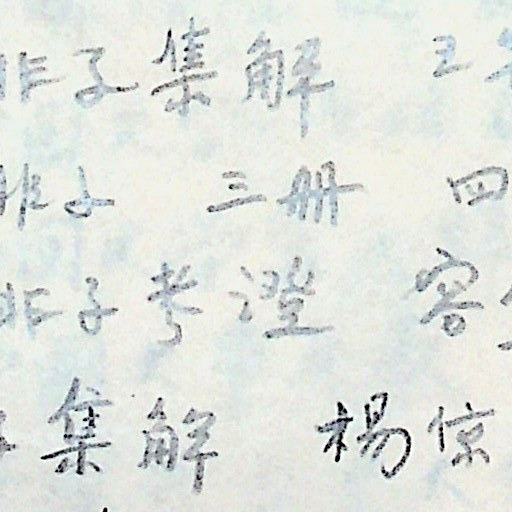 非子集解 王
非子 三册 四
非子考證 容
集解 楊倞